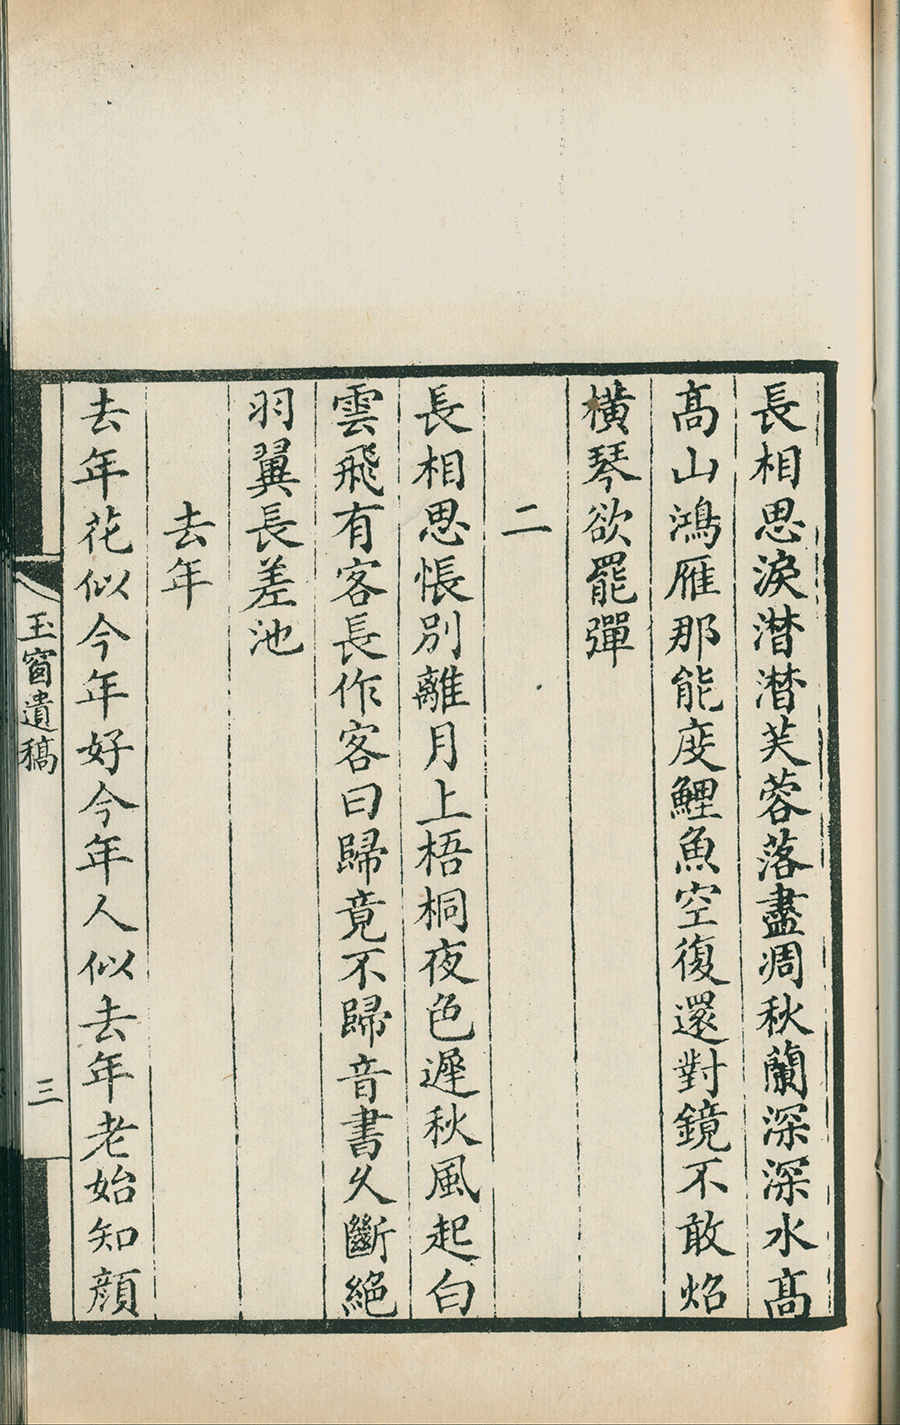 長相思淚潛潛芙蓉落盡凋秋蘭深深水高
高山鴻雁那能度鯉魚空復還對鏡不敢炤
橫琴欲罷彈
二
長相思悵別離月上梧桐夜色遲秋風起白
雲飛有客長作客曰歸竟不歸音書久斷絕
羽翼長差池
去年
去年花似今年好今年人似去年老始知顏
玉窗遺稿
三